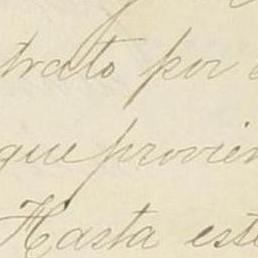 trato por
que provien
Hasta este